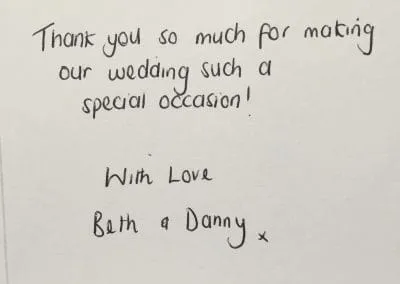 Thank you so much for making
our wedding such a
special occasion!
With Love
Beth & Danny x